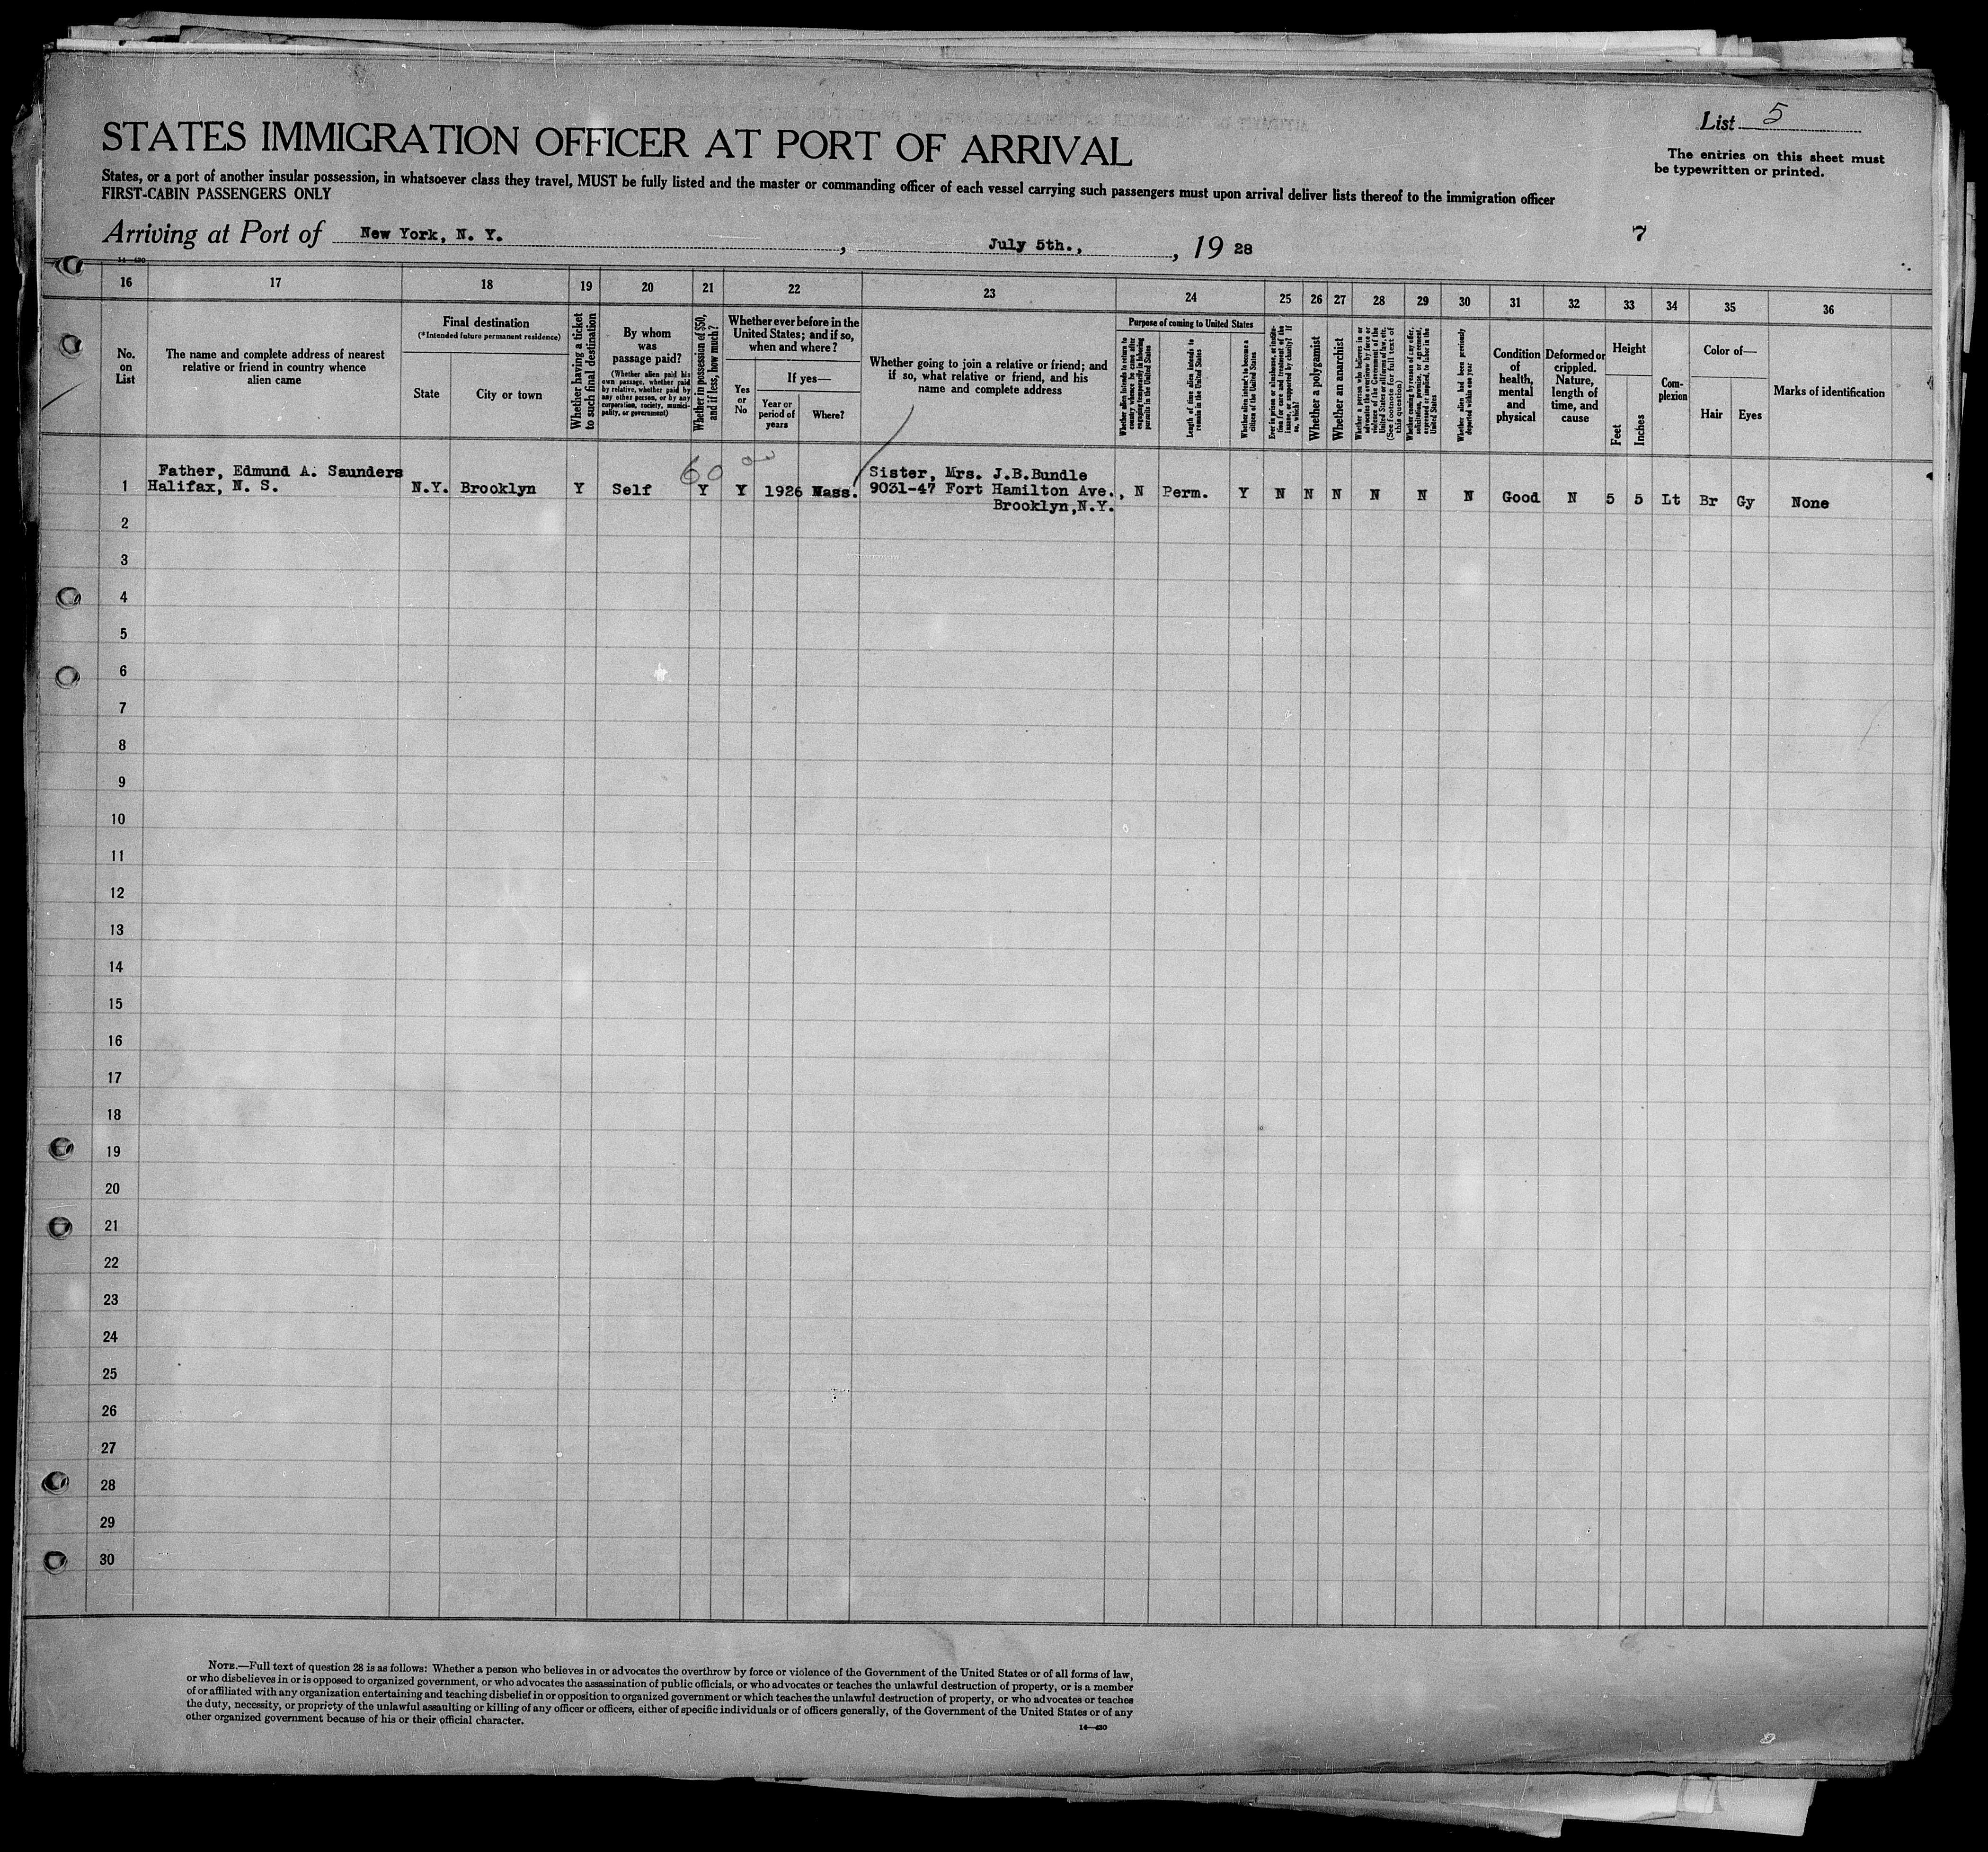 List 5
STATES IMMIGRATION OFFICER AT PORT OF ARRIVAL
The entries on this sheet must
be typewritten or printed.
States, or a port of another insular possession, in whatsoever class they travel, MUST be fully listed and the master or commanding officer of each vessel carrying such passengers must upon arrival deliver lists thereof to the immigration officer
FIRST-CABIN PASSENGERS ONLY
Arriving at Port of New York, N. Y. , July 5th., , 19 28
7
14—420
16 17 18 19 20 21 22 23 24 25 26 27 28 29 30 31 32 33 34 35 36
No.
on
List
The name and complete address of nearest
relative or friend in country whence
alien came
Final destination
(*Intended future permanent residence)
State
City or town
Whether having a ticket
to such final destination
By whom
was
passage paid?
(Whether alien paid his
own passage, whether paid
by relative, whether paid by
any other person, or by any
corporation, society, munici-
pality, or government)
Whether in possession of $50,
and if less, how much?
Whether ever before in the
United States; and if so,
when and where?
Yes
or
No
If yes—
Year or
period of
years
Where?
Whether going to join a relative or friend; and
if so, what relative or friend, and his
name and complete address
Purpose of coming to United States
Whether alien intends to return to
country whence he came after
engaging temporarily in laboring
pursuits in United States
Length of time alien intends to
remain in the United States
Whether alien intends to become a
citizen of the United States
Ever in prison or almshouse, or institu-
tion for care and treatment of the
insane, or supported by charity? If
so, which?
Whether a polygamist
Whether an anarchist
Whether a person who believes in or
advocates the overthrow by force or
violence of the Government of the
United States or all forms of law, etc.
(See footnote for full text of
this question)
Whether coming by reason of any offer,
solicitation, promise, or agreement,
expressed or implied, to labor in the
United States
Whether alien had been previously
deported within one year
Condition
of
health,
mental
and
physical
Deformed or
crippled.
Nature,
length of
time, and
cause
Height
Feet
Inches
Com-
plexion
Color of—
Hair
Eyes
Marks of identification
60
Father, Edmund A. Saunders Sister, Mrs. J.B.Bundle
1 Halifax, N. S. N.Y. Brooklyn Y Self Y Y 1926 Mass. 9031-47 Fort Hamilton Ave., N Perm. Y N N N N N N Good N 5 5 Lt Br Gy None
Brooklyn,N.Y.
2
3
4
5
6
7
8
9
10
11
12
13
14
15
16
17
18
19
20
21
22
23
24
25
26
27
28
29
30
NOTE.—Full text of question 28 is as follows: Whether a person who believes in or advocates the overthrow by force or violence of the Government of the United States or of all forms of law,
or who disbelieves in or is opposed to organized government, or who advocates the assassination of public officials, or who advocates or teaches the unlawful destruction of property, or is a member
of or affiliated with any organization entertaining and teaching disbelief in or opposition to organized government or which teaches the unlawful destruction of property, or who advocates or teaches
the duty, necessity, or propriety of the unlawful assaulting or killing of any officer or officers, either of specific individuals or of officers generally, of the Government of the United States or of any
other organized government because of his or their official character.
14—420